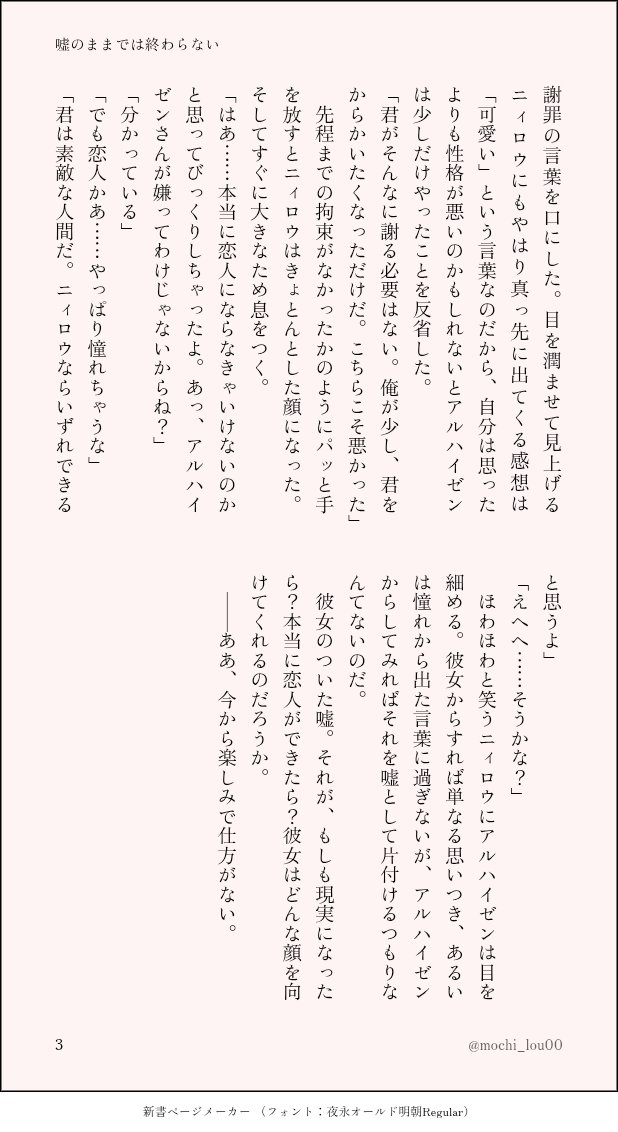 嘘のままでは終わらない
謝罪の言葉を口にした。目を潤ませて見上げる
ニィロウにもやはり真っ先に出てくる感想は
「可愛い」という言葉なのだから、自分は思った
よりも性格が悪いのかもしれないとアルハイゼン
は少しだけやったことを反省した。
「君がそんなに謝る必要はない。俺が少し、君を
からかいたくなっただけだ。こちらこそ悪かった」
　先程までの拘束がなかったかのようにパッと手
を放すとニィロウはきょとんとした顔になった。
そしてすぐに大きなため息をつく。
「はあ……本当に恋人にならなきゃいけないのか
と思ってびっくりしちゃったよ。あっ、アルハイ
ゼンさんが嫌ってわけじゃないからね？」
「分かっている」
「でも恋人かあ……やっぱり憧れちゃうな」
「君は素敵な人間だ。ニィロウならいずれできる
と思うよ」
「えへへ……そうかな？」
　ほわほわと笑うニィロウにアルハイゼンは目を
細める。彼女からすれば単なる思いつき、あるい
は憧れから出た言葉に過ぎないが、アルハイゼン
からしてみればそれを嘘として片付けるつもりな
んてないのだ。
　彼女のついた嘘。それが、もしも現実になった
ら？本当に恋人ができたら？彼女はどんな顔を向
けてくれるのだろうか。
　――ああ、今から楽しみで仕方がない。
3
@mochi_lou00
新書ページメーカー （フォント：夜永オールド明朝Regular）